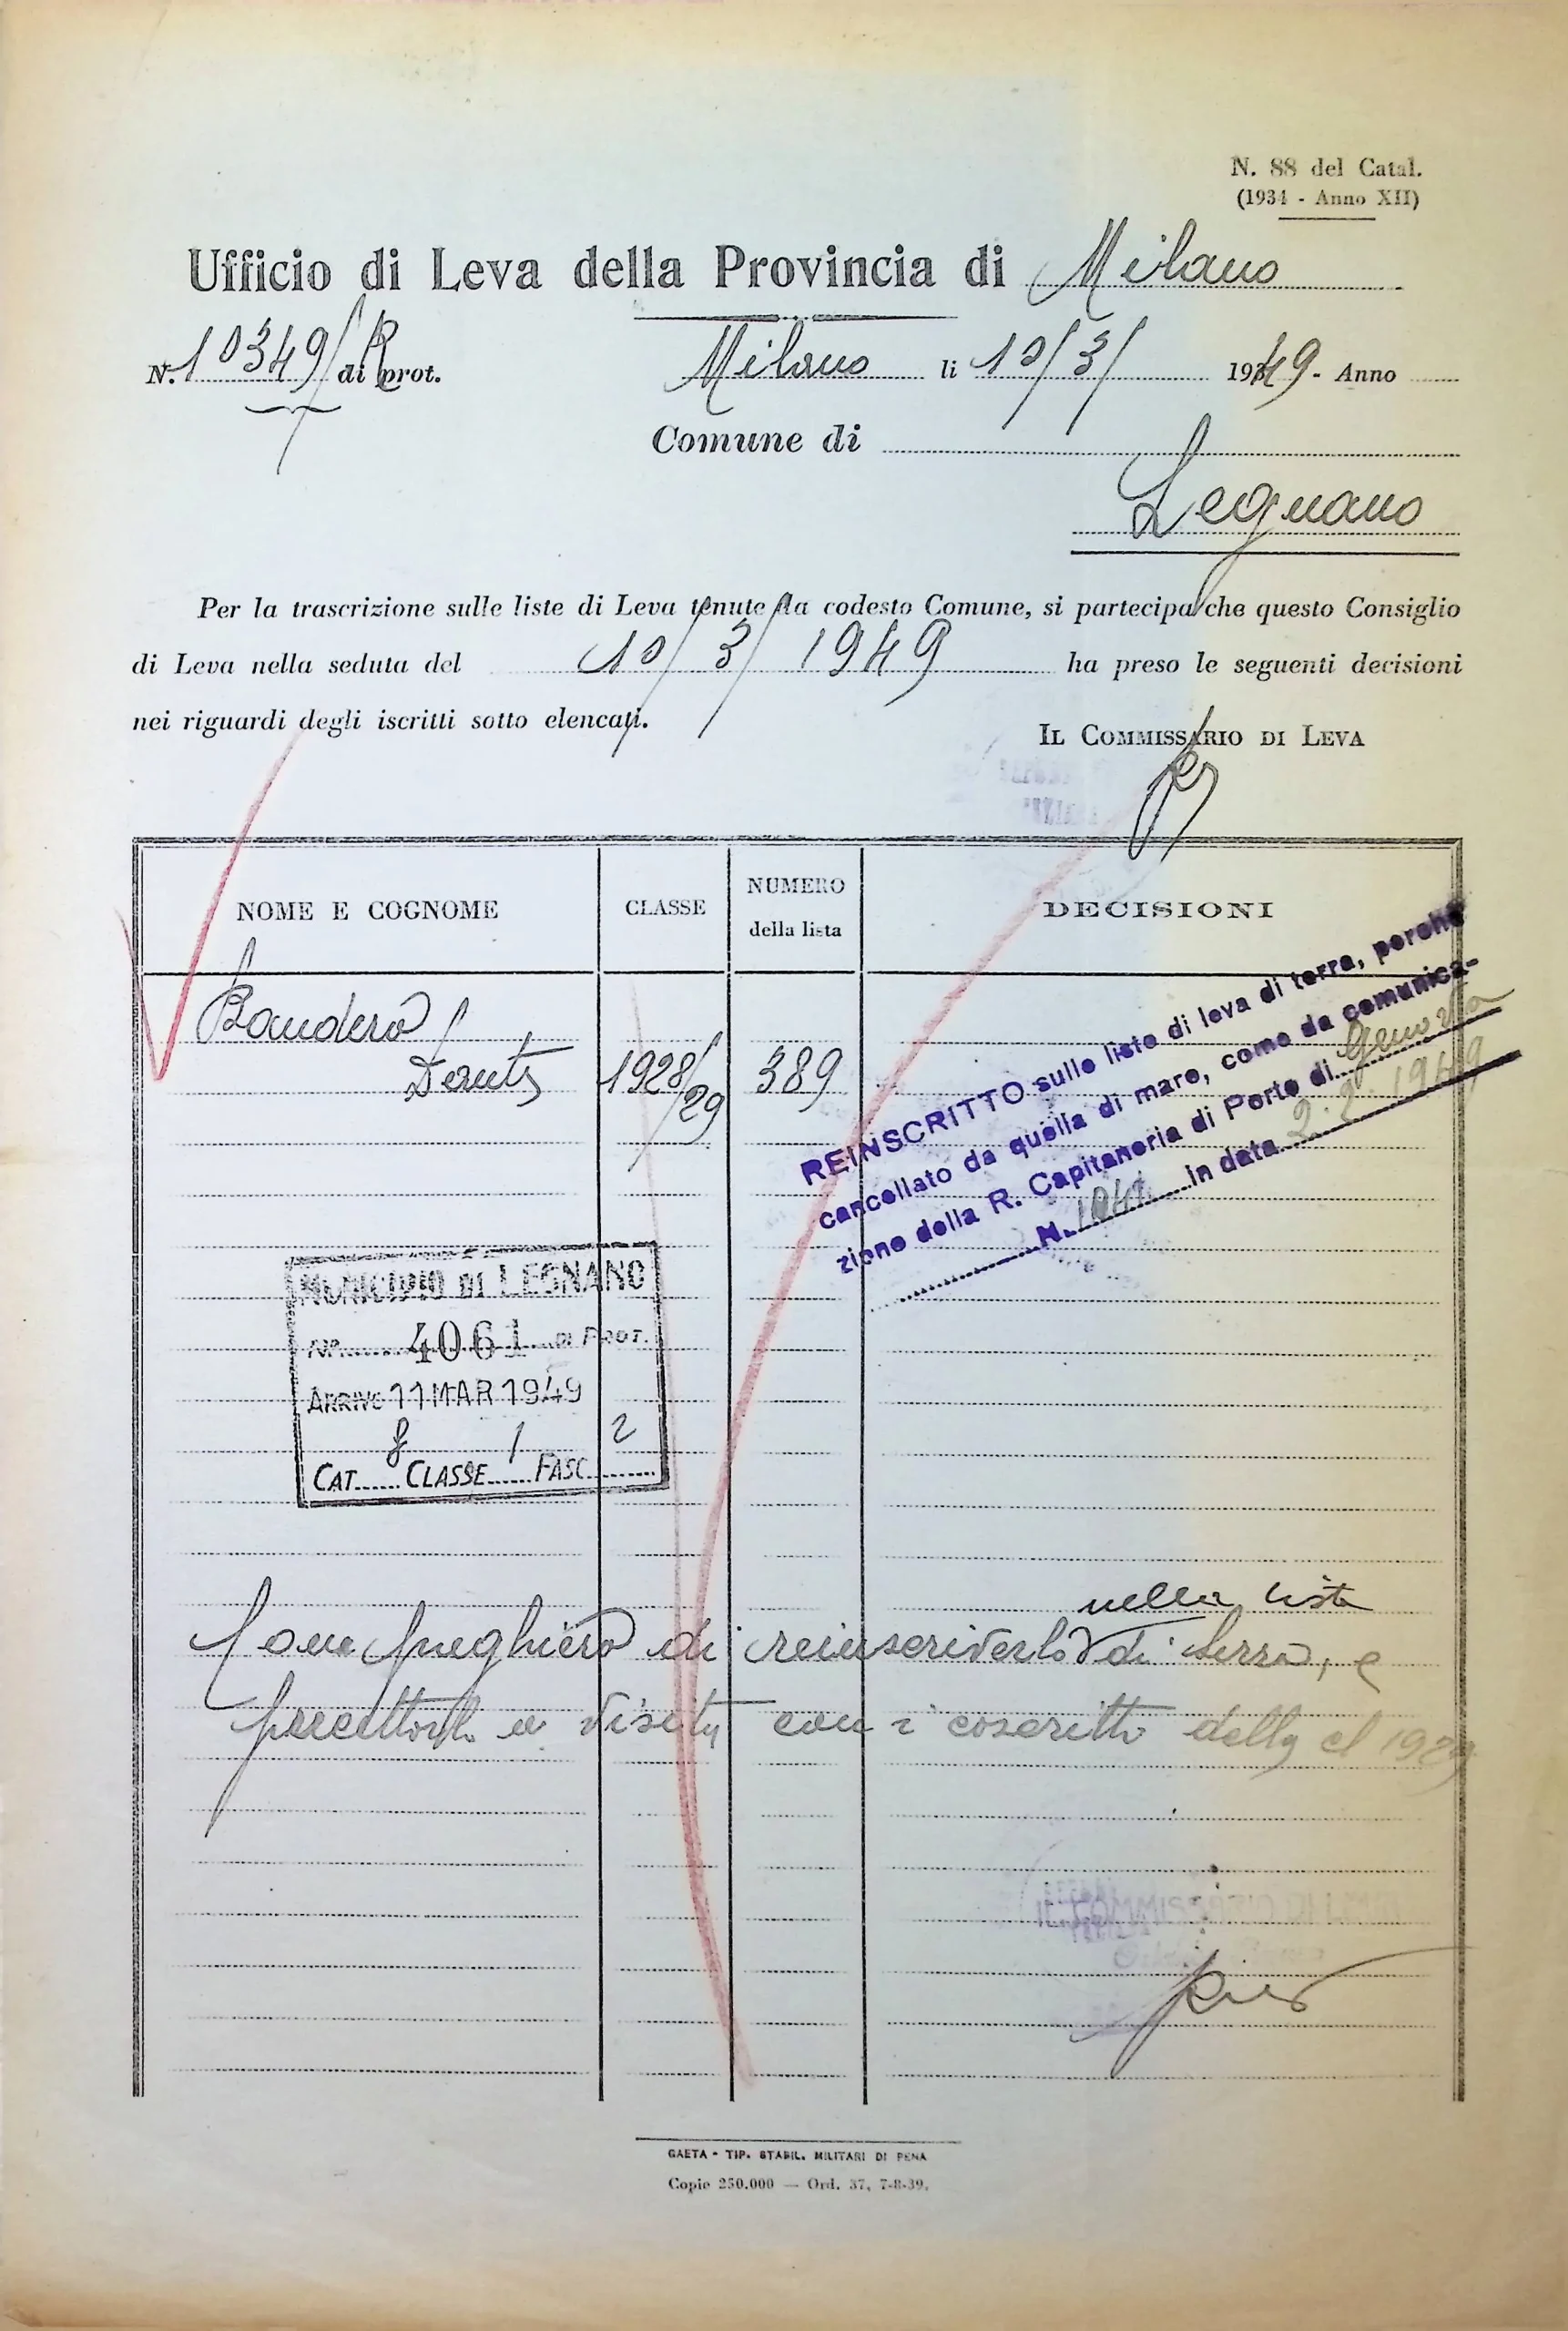 N. 88 del Catal.
(1934 - Anno XII)
Ufficio di Leva della Provincia di Milano
N. 10349/R di prot.
Milano li 10/3/ 1949 - Anno
Comune di
Legnano
Per la trascrizione sulle liste di Leva tenute da codesto Comune, si partecipa che questo Consiglio
di Leva nella seduta del 10/3/1949 ha preso le seguenti decisioni
nei riguardi degli iscritti sotto elencati.
IL COMMISSARIO DI LEVA
NOME E COGNOME CLASSE NUMERO della lista DECISIONI
Bandera
Dante 1928/29 389
REINSCRITTO sulle liste di leva di terra, perchè
cancellato da quella di mare, come da comunica-
zione della R. Capitaneria di Porto di Genova
N. 1041 in data 2.2.1949
MUNICIPIO DI LEGNANO
N. 4061 DI PROT.
ARRIVO 11 MAR 1949
8 1 2
CAT. CLASSE FASC.
nella lista
Con preghiera di reinscriverlo di terra, e
precettarlo a visita con i coscritti della cl 1929
IL COMMISSARIO DI LEVA
GAETA - TIP. STABIL. MILITARI DI PENA
Copie 250.000 — Ord. 37, 7-8-39.